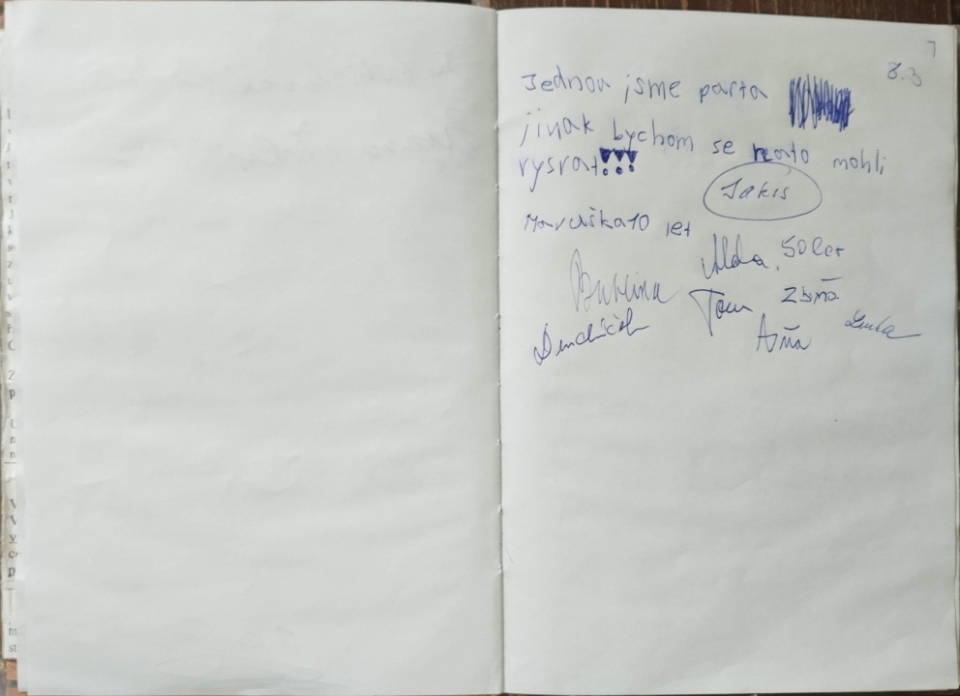 7
8.3
Jednou jsme parta
jinak bychom se nato mohli
vysrat!!!
Jakis
Maruška 10 let
Alda, 50 let
Bublina
Tom Zbyňa
Aňa Lenka